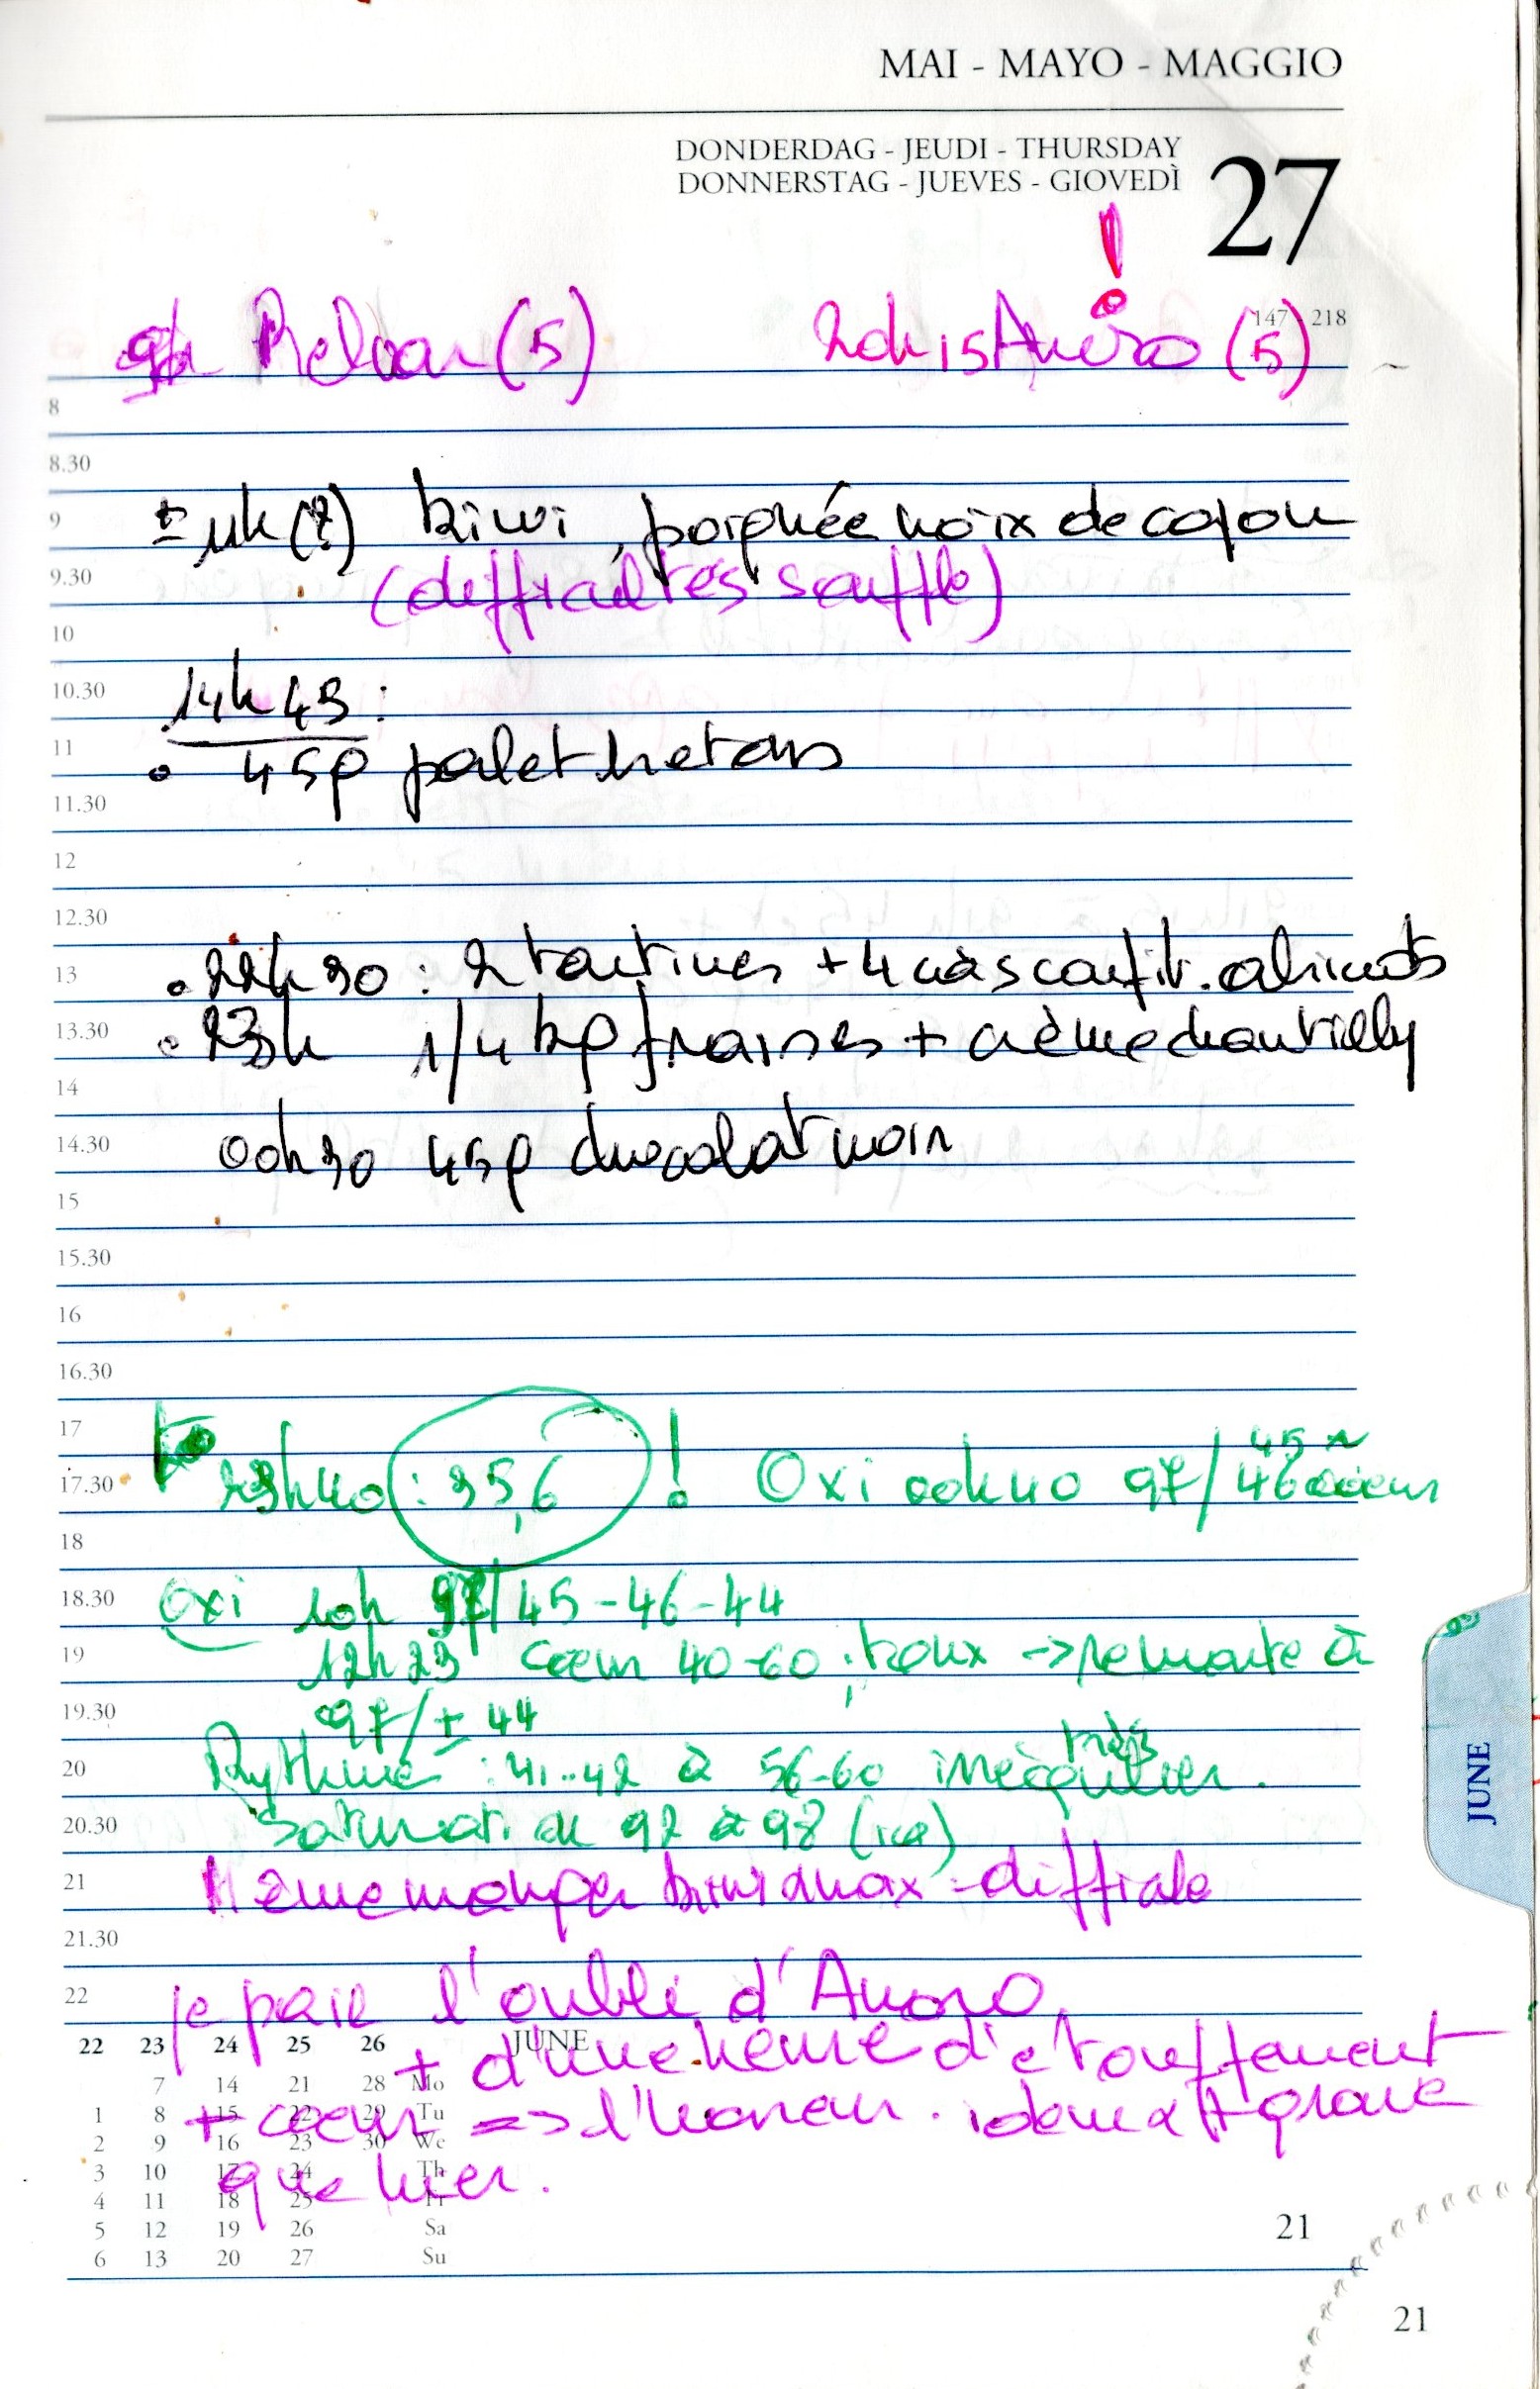 MAI - MAYO - MAGGIO
DONDERDAG - JEUDI - THURSDAY
DONNERSTAG - JUEVES - GIOVEDÌ
27
147 218
9h Relvar (5) 20h15 Anoro (5) !
8
8.30
9 ± 11h (?) kiwi, poignée noix de cajou
9.30 (difficultés souffle)
10
10.30 14h45 :
11 • 45g palet bretons
11.30
12
12.30
13 • 22h30 : 2 tartines + 4 càs confit. abricots
13.30 • 23h 1/4 kg fraises + crème chantilly
14
14.30 00h30 45g chocolat noir
15
15.30
16
16.30
17
17.30 23h40 : 35,6 ! Oxi 00h40 97/46 coeur
45
18
18.30 Oxi 10h 97/45-46-44
19 12h23 coeur 40-60 ; toux -> remonte à
19.30 97/± 44
20 Rythme : 41..42 à 56-60 très irrégulier.
20.30 saturat. de 92 à 98
21 même manger kiwi + noix = difficile
21.30
22 je paie l'oubli d'Anoro
22 23 24 25 26 JUNE
+ d'une heure d'étouffement
7 14 21 28 Mo
1 8 15 22 29 Tu
+ coeur => l'horreur. idem + grave
2 9 16 23 30 We
3 10 17 24 Th
que hier.
4 11 18 25 Fr
5 12 19 26 Sa
6 13 20 27 Su
21
21
JUNE